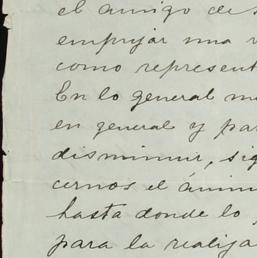 el amigo des
empujar una
como represent
En lo general m
en general y par
disminuir, sig
cernos el ánim
hasta donde lo
para la realiza